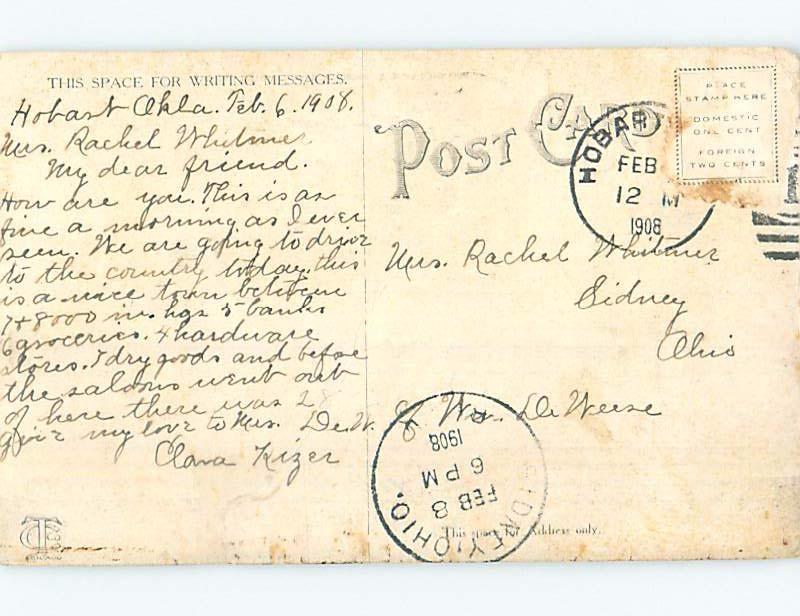 THIS SPACE FOR WRITING MESSAGES.
Hobart Okla. Feb. 6. 1908.
Mrs. Rachel Whitmer
My dear friend.
How are you. This is as
fine a morning as I ever
seen. We are going to drive
to the country today. this
is a nice town between
7+8000 in. has 5 banks
6 groceries. 4 hardware
stores. 7 dry goods and before
the saloons went out
of here there was 28
give my love to Mrs. De.W.
Clara Kizer
POST CARD
PLACE
STAMP HERE
DOMESTIC
ONE CENT
FOREIGN
TWO CENTS
HOBAR
FEB
12 M
1908
Mrs. Rachel Whitmer
Sidney
Ohio
% Wm. De Weese
SIDNEY, OHIO.
FEB 8
6 PM
1908
This space for Address only.